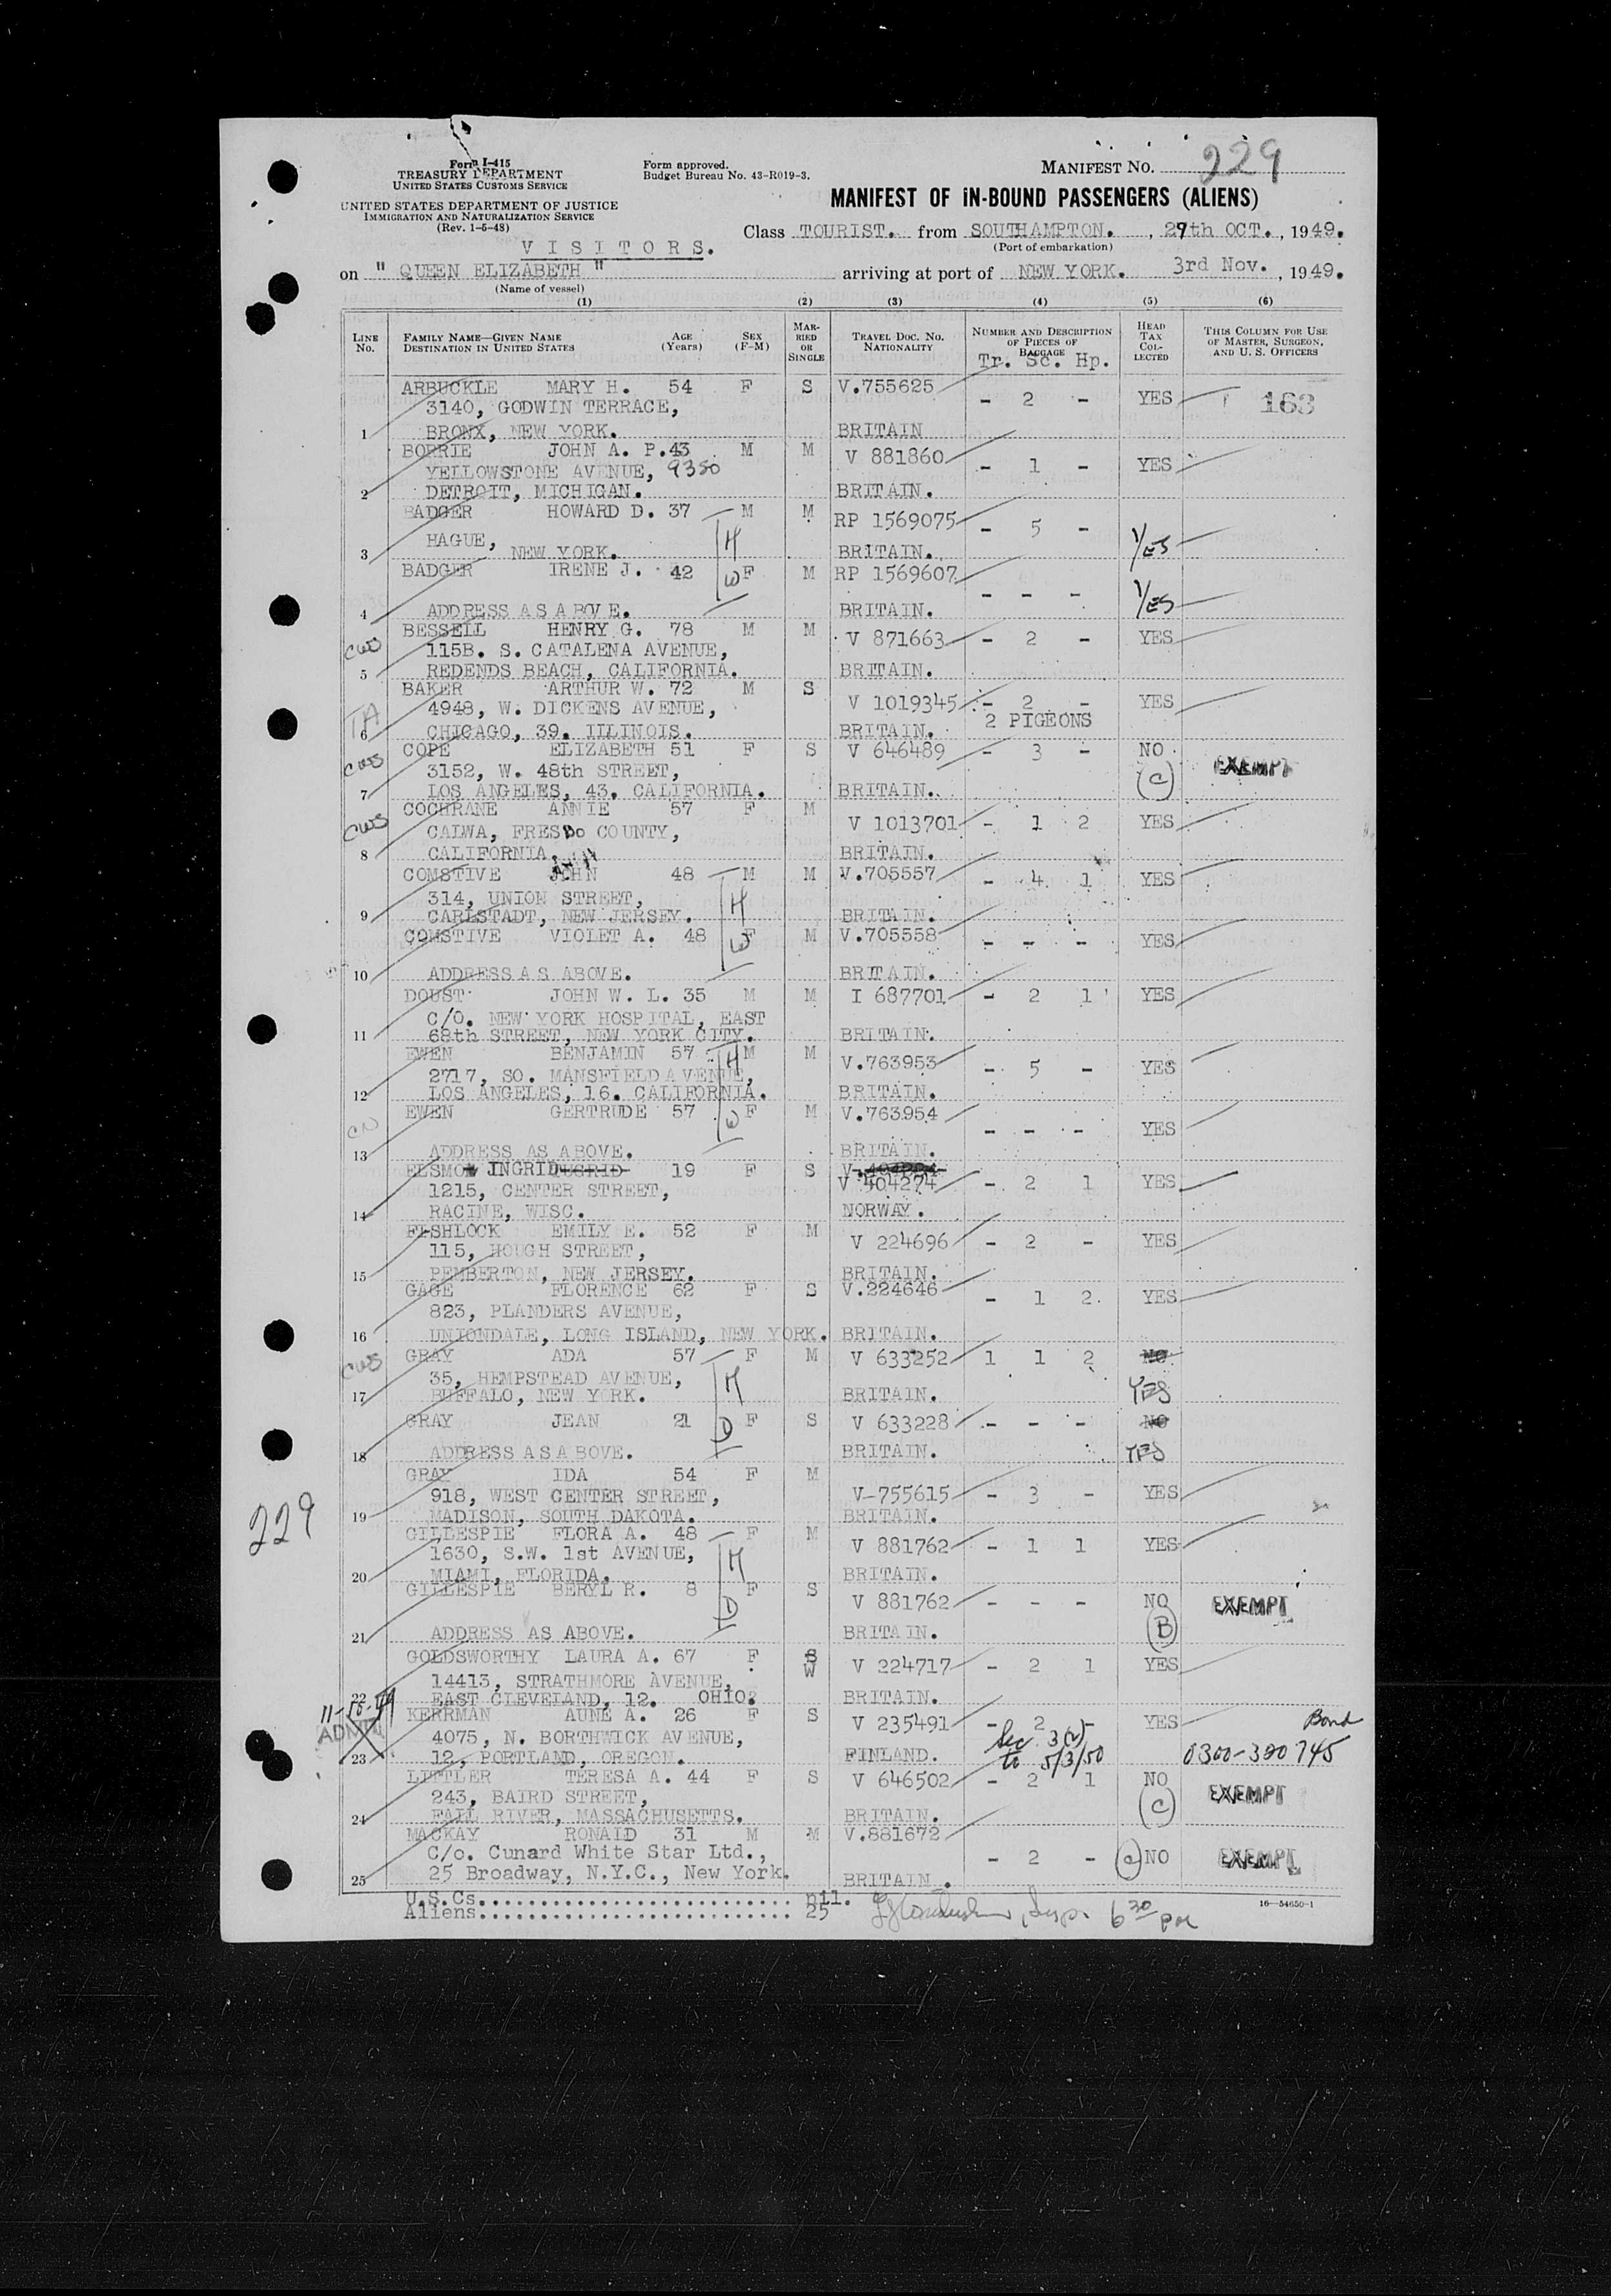 Form I-415
TREASURY DEPARTMENT
UNITED STATES CUSTOMS SERVICE
UNITED STATES DEPARTMENT OF JUSTICE
IMMIGRATION AND NATURALIZATION SERVICE
(Rev. 1-5-48)
Form approved.
Budget Bureau No. 43-R019-3.
MANIFEST NO. 229
MANIFEST OF IN-BOUND PASSENGERS (ALIENS)
VISITORS.
Class TOURIST. from SOUTHAMPTON. , 29th OCT. , 1949.
(Port of embarkation)
on " QUEEN ELIZABETH " arriving at port of NEW YORK. 3rd Nov. , 1949.
(Name of vessel)
(1) (2) (3) (4) (5) (6)
LINE No. FAMILY NAME—GIVEN NAME DESTINATION IN UNITED STATES AGE (Years) SEX (F-M) MARRIED OR SINGLE TRAVEL DOC. NO. NATIONALITY NUMBER AND DESCRIPTION OF PIECES OF BAGGAGE HEAD TAX COLLECTED THIS COLUMN FOR USE OF MASTER, SURGEON, AND U. S. OFFICERS
Tr. Sc. Hp.
ARBUCKLE MARY H. 54 F S V.755625 - 2 - YES 163
3140, GODWIN TERRACE,
1 BRONX, NEW YORK. BRITAIN
BORRIE JOHN A. P. 43 M M V 881860 - 1 - YES
YELLOWSTONE AVENUE, 9350
2 DETROIT, MICHIGAN. BRITAIN.
BADGER HOWARD D. 37 M M RP 1569075 - 5 - YES
HAGUE, H
3 NEW YORK. BRITAIN.
BADGER IRENE J. 42 W F M RP 1569607 - - - YES
4 ADDRESS AS ABOVE. BRITAIN.
BESSELL HENRY G. 78 M M V 871663 - 2 - YES
CWS 115B. S. CATALENA AVENUE,
5 REDENDS BEACH, CALIFORNIA. BRITAIN.
BAKER ARTHUR W. 72 M S V 1019345 - 2 - YES
TA 4948, W. DICKENS AVENUE, 2 PIGEONS
6 CHICAGO, 39. ILLINOIS. BRITAIN.
COPE ELIZABETH 51 F S V 646489 - 3 - NO
CWS 3152, W. 48th STREET, (C) EXEMPT
7 LOS ANGELES, 43. CALIFORNIA. BRITAIN.
COCHRANE ANNIE 57 F M V 1013701 - 1 2 YES
CWS CALWA, FRESNO COUNTY,
8 CALIFORNIA. BRITAIN.
COMSTIVE JOHN 48 M M V.705557 - 4 1 YES
314, UNION STREET, H
9 CARLSTADT, NEW JERSEY. BRITAIN.
COMSTIVE VIOLET A. 48 W F M V.705558 - - - YES
10 ADDRESS AS ABOVE. BRITAIN.
DOUST JOHN W. L. 35 M M I 687701 - 2 1 YES
C/O. NEW YORK HOSPITAL, EAST
11 68th STREET, NEW YORK CITY. BRITAIN.
EWEN BENJAMIN 57 H M M V.763953 - 5 - YES
2717, SO. MANSFIELD AVENUE,
12 LOS ANGELES, 16. CALIFORNIA. BRITAIN.
EWEN GERTRUDE 57 W F M V.763954 - - - YES
13 ADDRESS AS ABOVE. BRITAIN.
INGRID 19 F S V 404274 - 2 1 YES
1215, CENTER STREET,
14 RACINE, WISC. NORWAY.
FISHLOCK EMILY E. 52 F M V 224696 - 2 - YES
115, HOUGH STREET,
15 PEMBERTON, NEW JERSEY. BRITAIN.
GAGE FLORENCE 62 F S V.224646 - 1 2 YES
823, PLANDERS AVENUE,
16 UNIONDALE, LONG ISLAND, NEW YORK. BRITAIN.
CWS GRAY ADA 57 F M V 633252 1 1 2 NO
35, HEMPSTEAD AVENUE, M YES
17 BUFFALO, NEW YORK. BRITAIN.
GRAY JEAN 21 D F S V 633228 - - - NO
18 ADDRESS AS ABOVE. BRITAIN. YES
GRAY IDA 54 F M V-755615 - 3 - YES
918, WEST CENTER STREET,
19 MADISON, SOUTH DAKOTA. BRITAIN.
229
GILLESPIE FLORA A. 48 F M V 881762 - 1 1 YES
1630, S.W. 1st AVENUE, M
20 MIAMI, FLORIDA. BRITAIN.
GILLESPIE BERYL R. 8 F S V 881762 - - - NO EXEMPT
D (B)
21 ADDRESS AS ABOVE. BRITAIN.
GOLDSWORTHY LAURA A. 67 F S W V 224717 - 2 1 YES
14413, STRATHMORE AVENUE,
22 EAST CLEVELAND, 12. OHIO. BRITAIN.
KERRMAN AUNE A. 26 F S V 235491 - 2 - YES Bond
ADMIT 4075, N. BORTHWICK AVENUE, Sec 3(2)
23 12, PORTLAND, OREGON. FINLAND. to 5/3/50 0300-320745
LITTLER TERESA A. 44 F S V 646502 - 2 1 NO
243, BAIRD STREET, (C) EXEMPT
24 FALL RIVER, MASSACHUSETTS. BRITAIN.
MACKAY RONALD 31 M M V.881672
C/o. Cunard White Star Ltd., - 2 - (C) NO EXEMPT
25 25 Broadway, N.Y.C., New York. BRITAIN.
U.S.Cs. nil.
Aliens. 25 Insp. 6 30 pm
16—54650-1